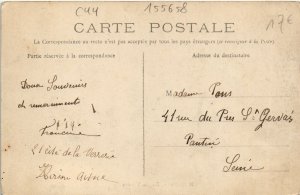 C44 155658 17€
CARTE POSTALE
La Correspondance au recto n'est pas acceptée par tous les pays étrangers (se renseigner à la Poste)
Partie réservée à la correspondance
Adresse du destinataire
Doux Souvenirs
et remerciements
Francine
21 Cité de la Verrerie
Hirson Aisne
Madame Pons
41 rue du Pré St Gervais
Pantin
Seine